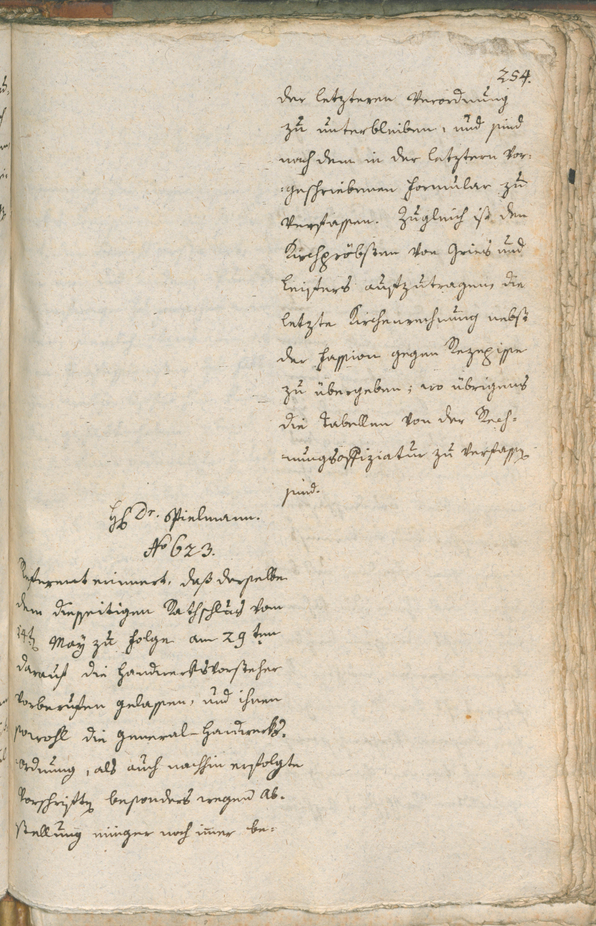 254.
der letzteren Verordnung
zu unterbleiben, und sind
nach dem in der letztern vor-
geschriebenen Formular zu
verfassen. Zugleich ist den
Kirchpröbsten von Gries und
Leifers aufzutragen, die
letzte Kirchenrechnung nebst
der Fassion gegen Rezepisse
zu übergeben; wo übrigens
die Tabellen von der Rech-
nungsoffiziatur zu verfassen
sind.
H. Dr. Spielmann.
No 623.
Referent erinnert, daß derselbe
dem diesseitigen Rathschluß vom
May zu folge am 29ten
darauf die Handwerksvorsteher
vorberufen gelassen, und ihnen
sowohl die General-Handwerks-
ordnung, als auch nachhin erfolgte
Vorschriften besonders wegen Ab-
stellung einiger noch immer be-